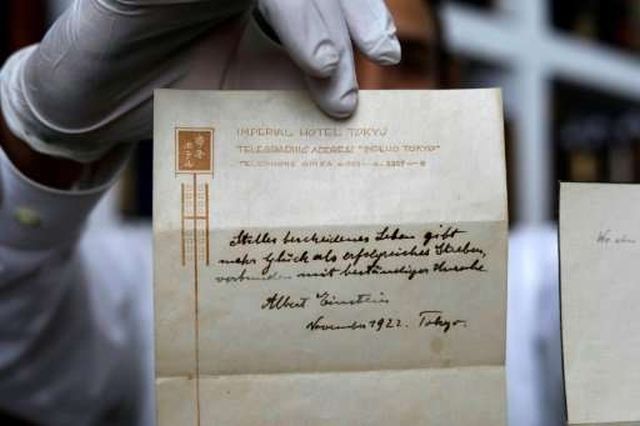 帝国
ホテル
IMPERIAL HOTEL TOKYO
TELEGRAPHIC ADDRESS "IMPEHO TOKYO"
TELEPHONE GINZA
Stilles bescheidenes Leben gibt
mehr Glück als erfolgreiches Streben,
verbunden mit beständiger Unruhe.
Albert Einstein
November 1922. Tokyo.
Wo ein